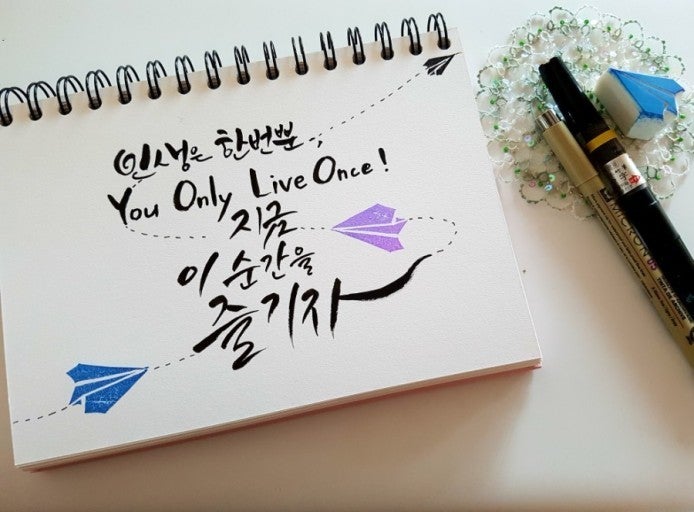 인생은 한번뿐..,
You Only Live Once!
지금
이 순간을
즐기자
MICRON 05